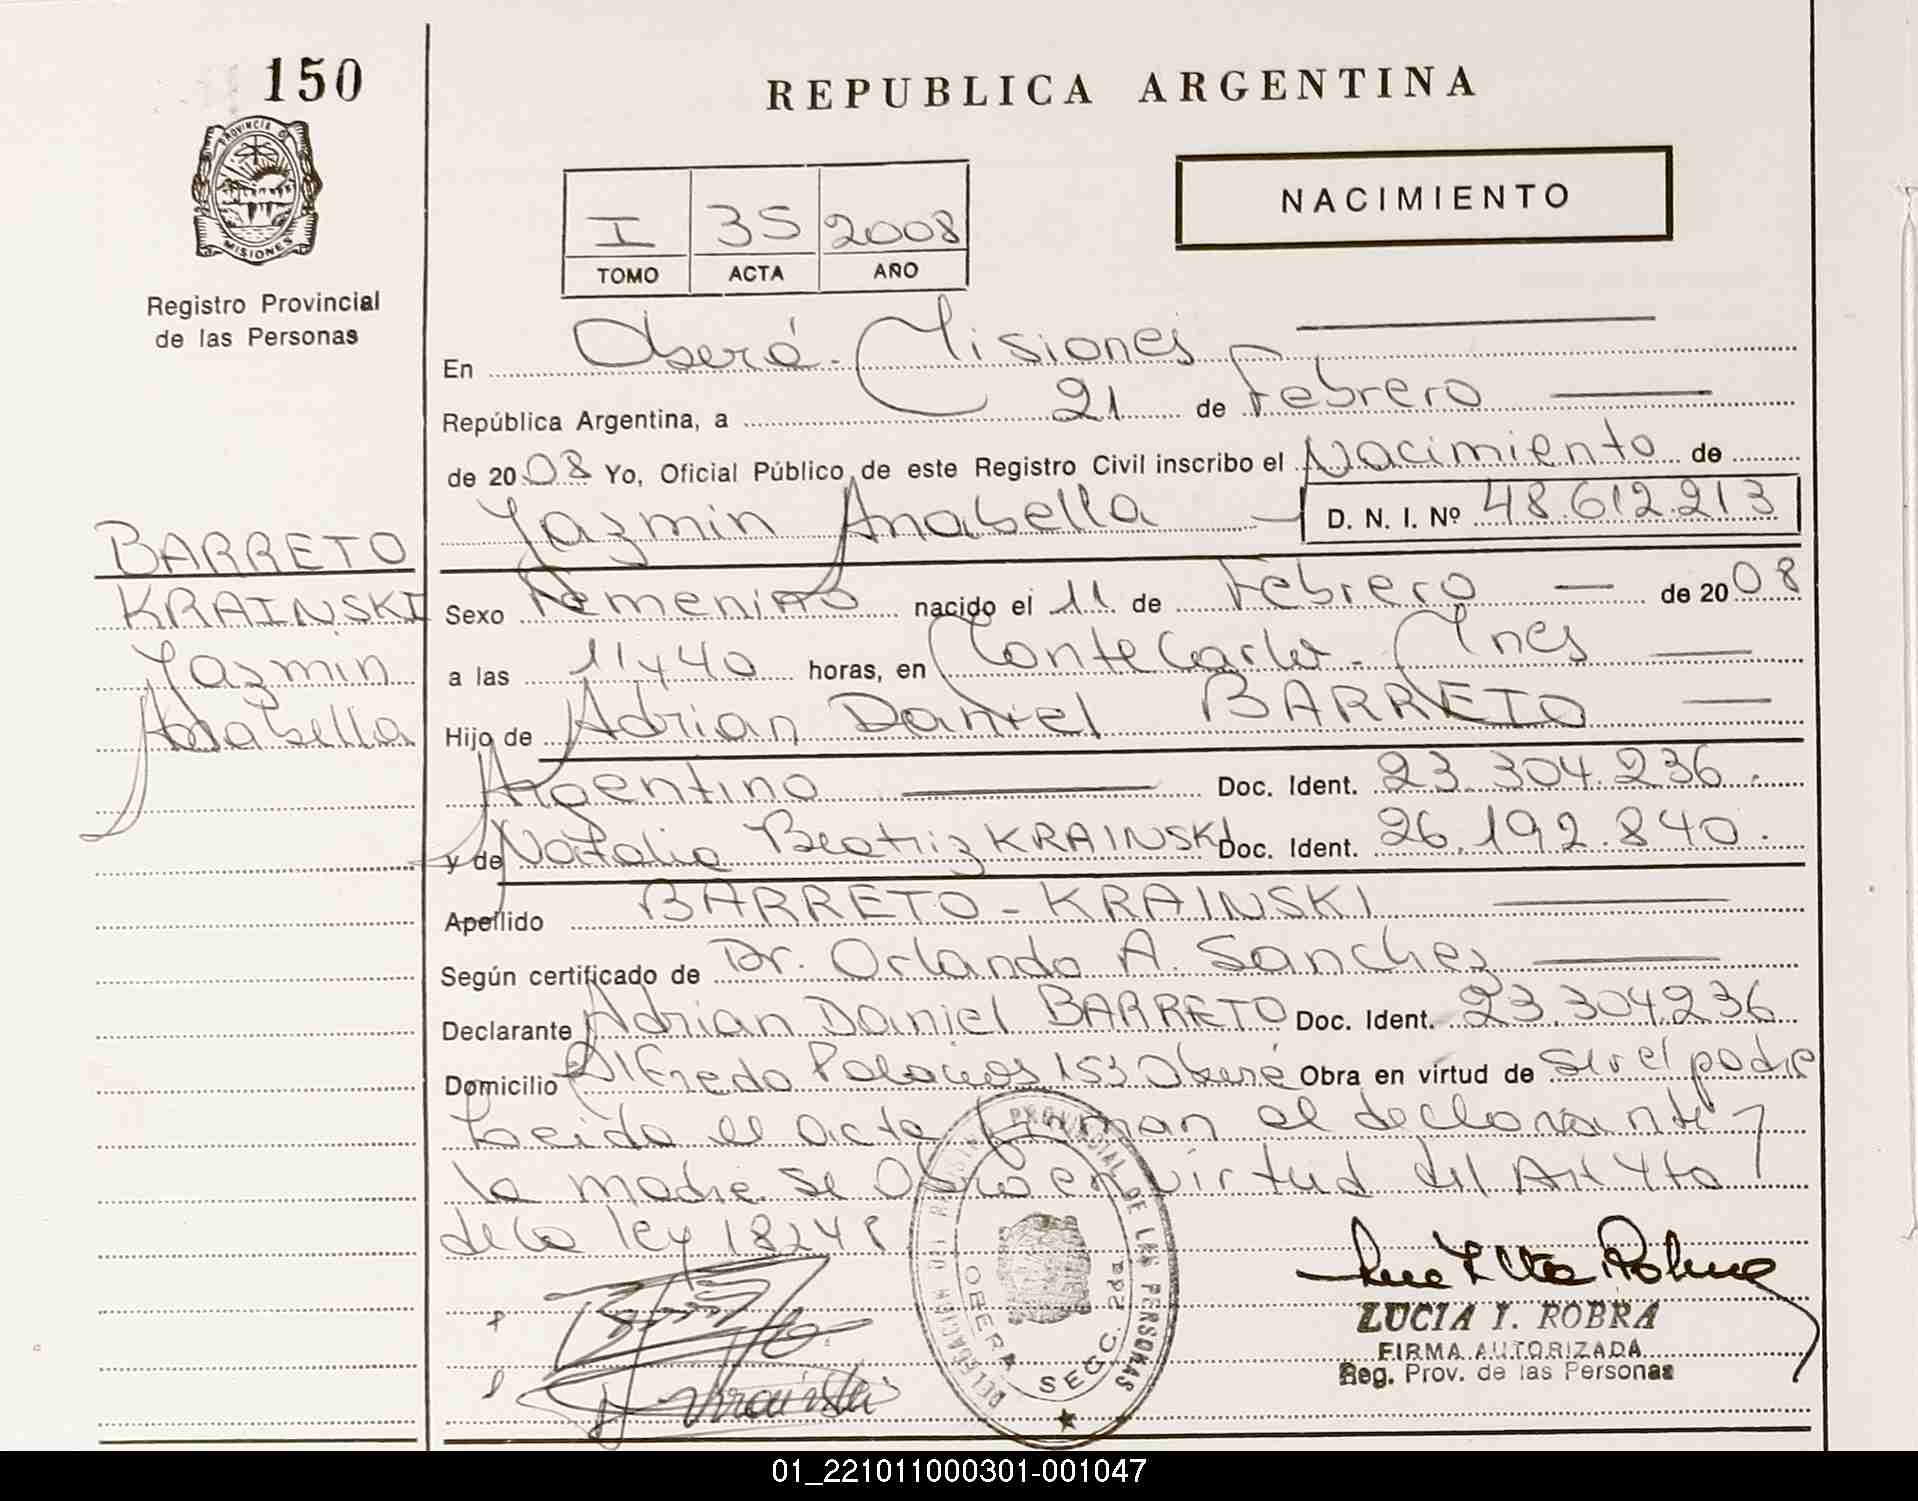 150
REPUBLICA ARGENTINA
PROVINCIA D
MISIONES
Registro Provincial
de las Personas
NACIMIENTO
I 35 2008
TOMO ACTA AÑO
En Oberá - Misiones
República Argentina, a 21 de Febrero
de 2008 Yo, Oficial Público de este Registro Civil inscribo el Nacimiento de
Yazmin Anabella D. N. I. Nº 48.612.213
BARRETO
KRAINSKI
Yazmin
Anabella
Sexo Femenino nacido el 11 de Febrero de 2008
a las 11 y 40 horas, en Montecarlo - Mnes
Hijo de Adrian Daniel BARRETO
Argentino Doc. Ident. 23.304.236.
y de Natalia Beatriz KRAINSKI Doc. Ident. 26.192.840.
Apellido BARRETO - KRAINSKI
Según certificado de Dr. Orlando A. Sanchez
Declarante Adrian Daniel BARRETO Doc. Ident. 23.304.236
Domicilio Alfredo Palacios 153 Oberá Obra en virtud de ser el padre
Leida el acta firman el declarante y
la madre se obro en virtud del Art 4to
de la ley 18248
DELEGACION DEL REGISTRO PROVINCIAL DE LAS PERSONAS
OBERA SECC. 2da
LUCIA I. ROBRA
FIRMA AUTORIZADA
Reg. Prov. de las Personas
01_221011000301-001047